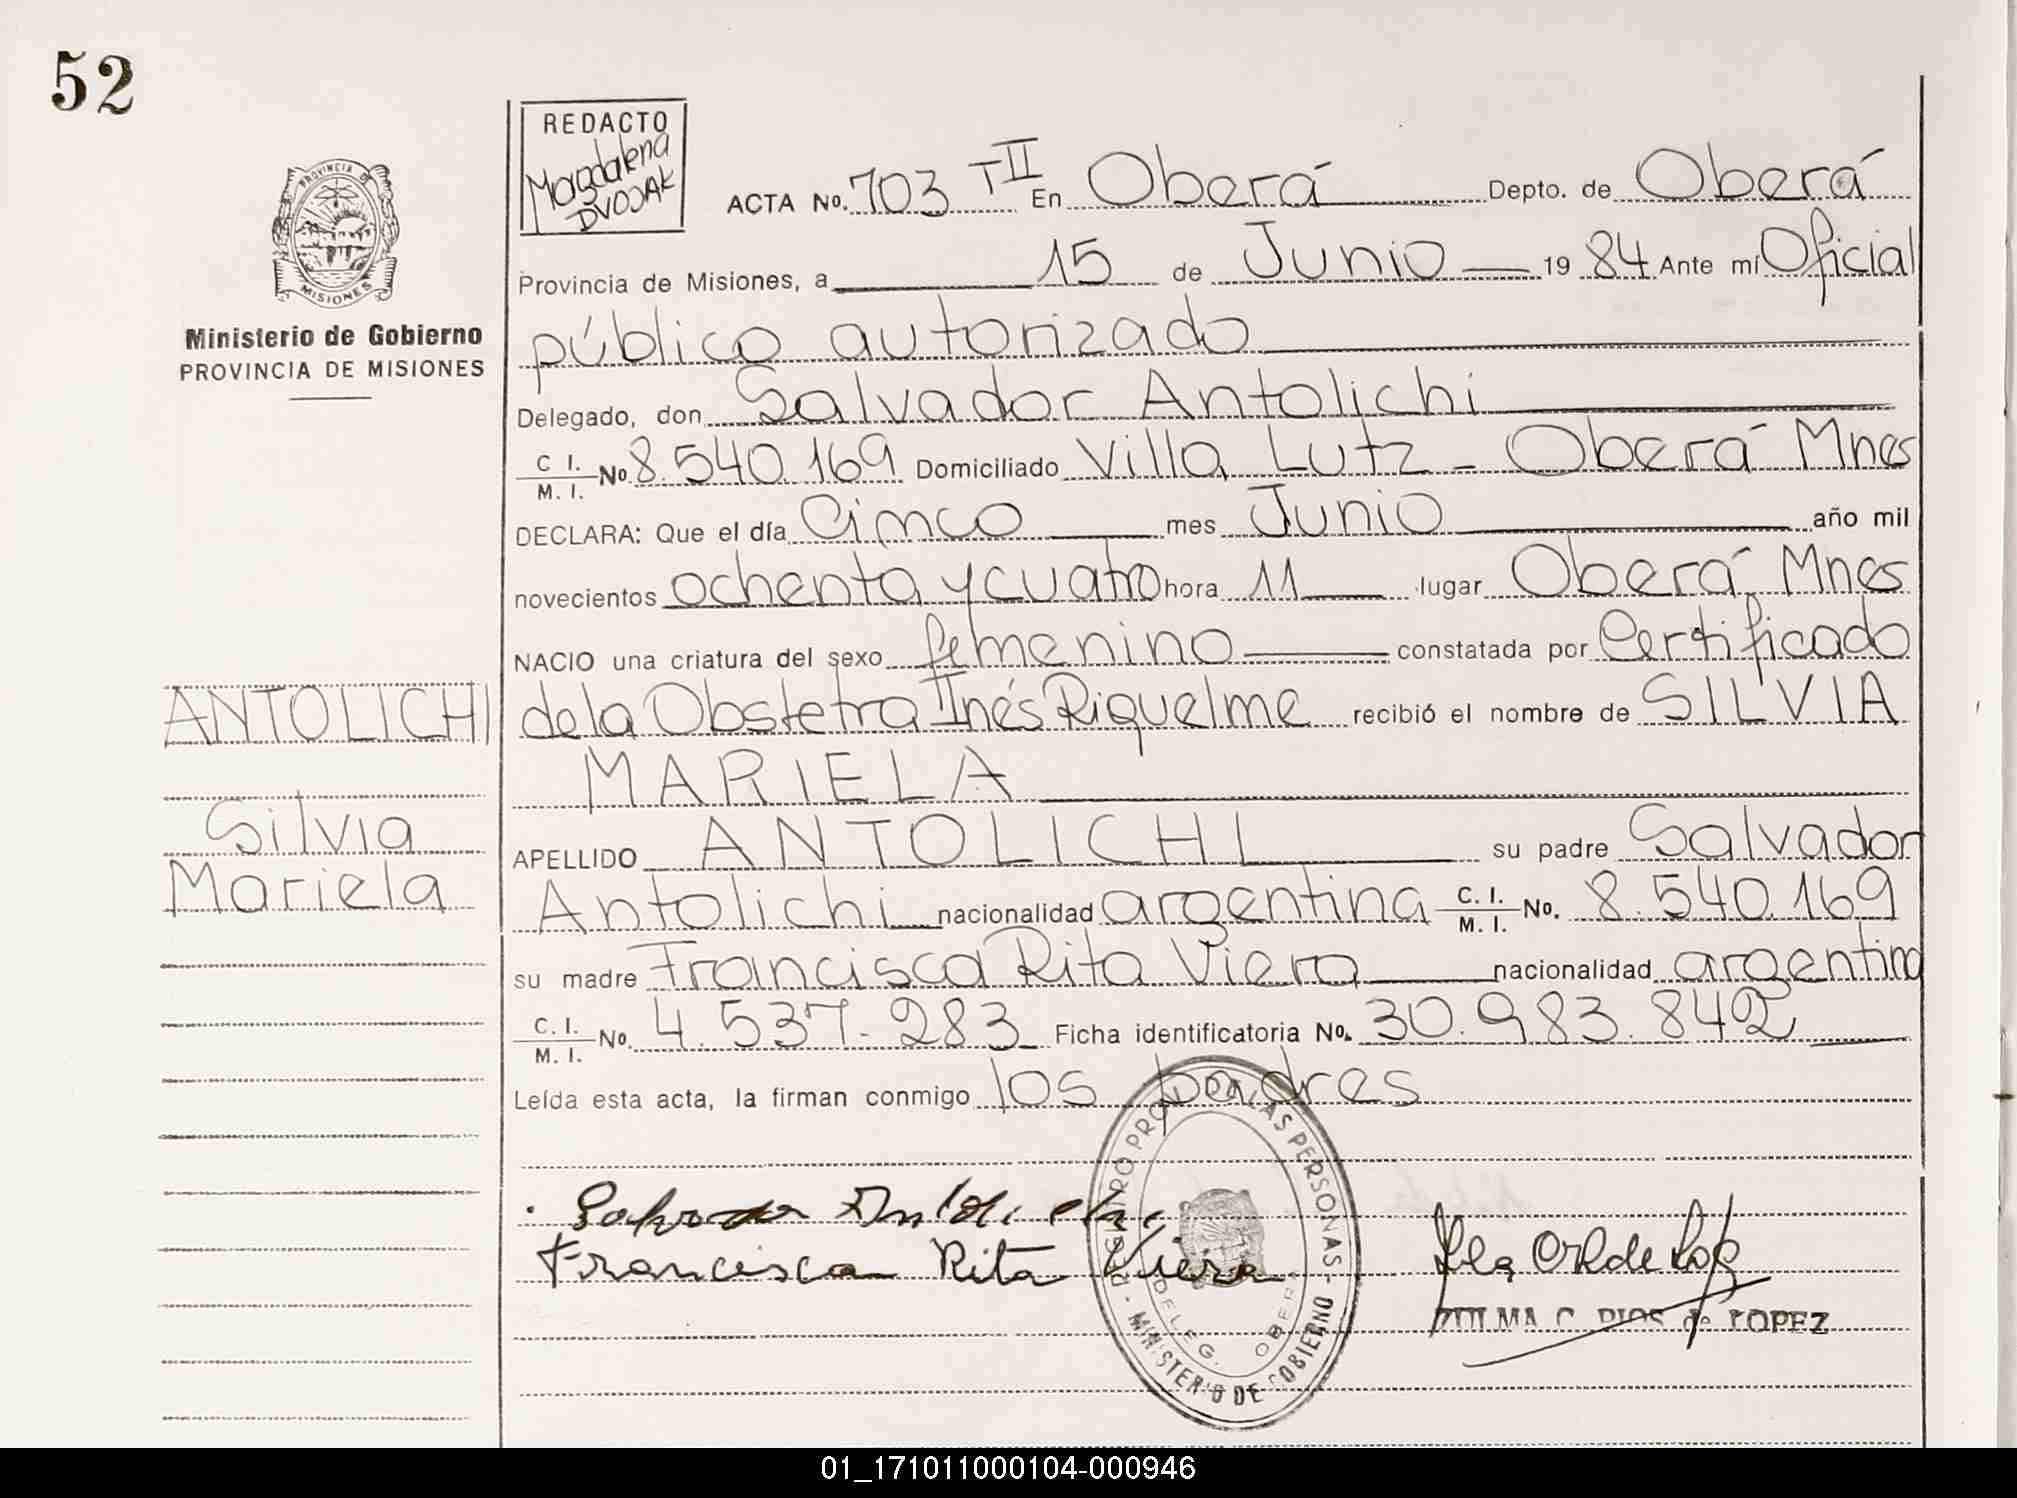 52
REDACTO
Magdalena
DVOJAK
PROVINCIA D
MISIONES
Ministerio de Gobierno
PROVINCIA DE MISIONES
ACTA No. 703 TII En Oberá Depto. de Oberá
Provincia de Misiones, a 15 de Junio 1984 Ante mí Oficial
público autorizado
Delegado, don Salvador Antolichi
C I. / M. I. No. 8.540.169 Domiciliado Villa Lutz - Oberá Mnes
DECLARA: Que el día Cinco mes Junio año mil
novecientos ochenta y cuatro hora 11 lugar Oberá Mnes
NACIO una criatura del sexo femenino constatada por Certificado
ANTOLICHI
de la Obstetra Inés Riquelme recibió el nombre de SILVIA
MARIELA
Silvia
Mariela
APELLIDO ANTOLICHI su padre Salvador
Antolichi nacionalidad argentina C. I. / M. I. No. 8.540.169
su madre Francisca Rita Viera nacionalidad argentina
C. I. / M. I. No. 4.537.283 Ficha identificatoria No. 30.983.842
Leída esta acta, la firman conmigo los padres
Salvador Antolichi
Francisca Rita Viera
REGISTRO PROV. DE LAS PERSONAS - MINISTERIO DE GOBIERNO -
DELEG. OBERA
ZULMA C. RIOS de LOPEZ
01_171011000104-000946